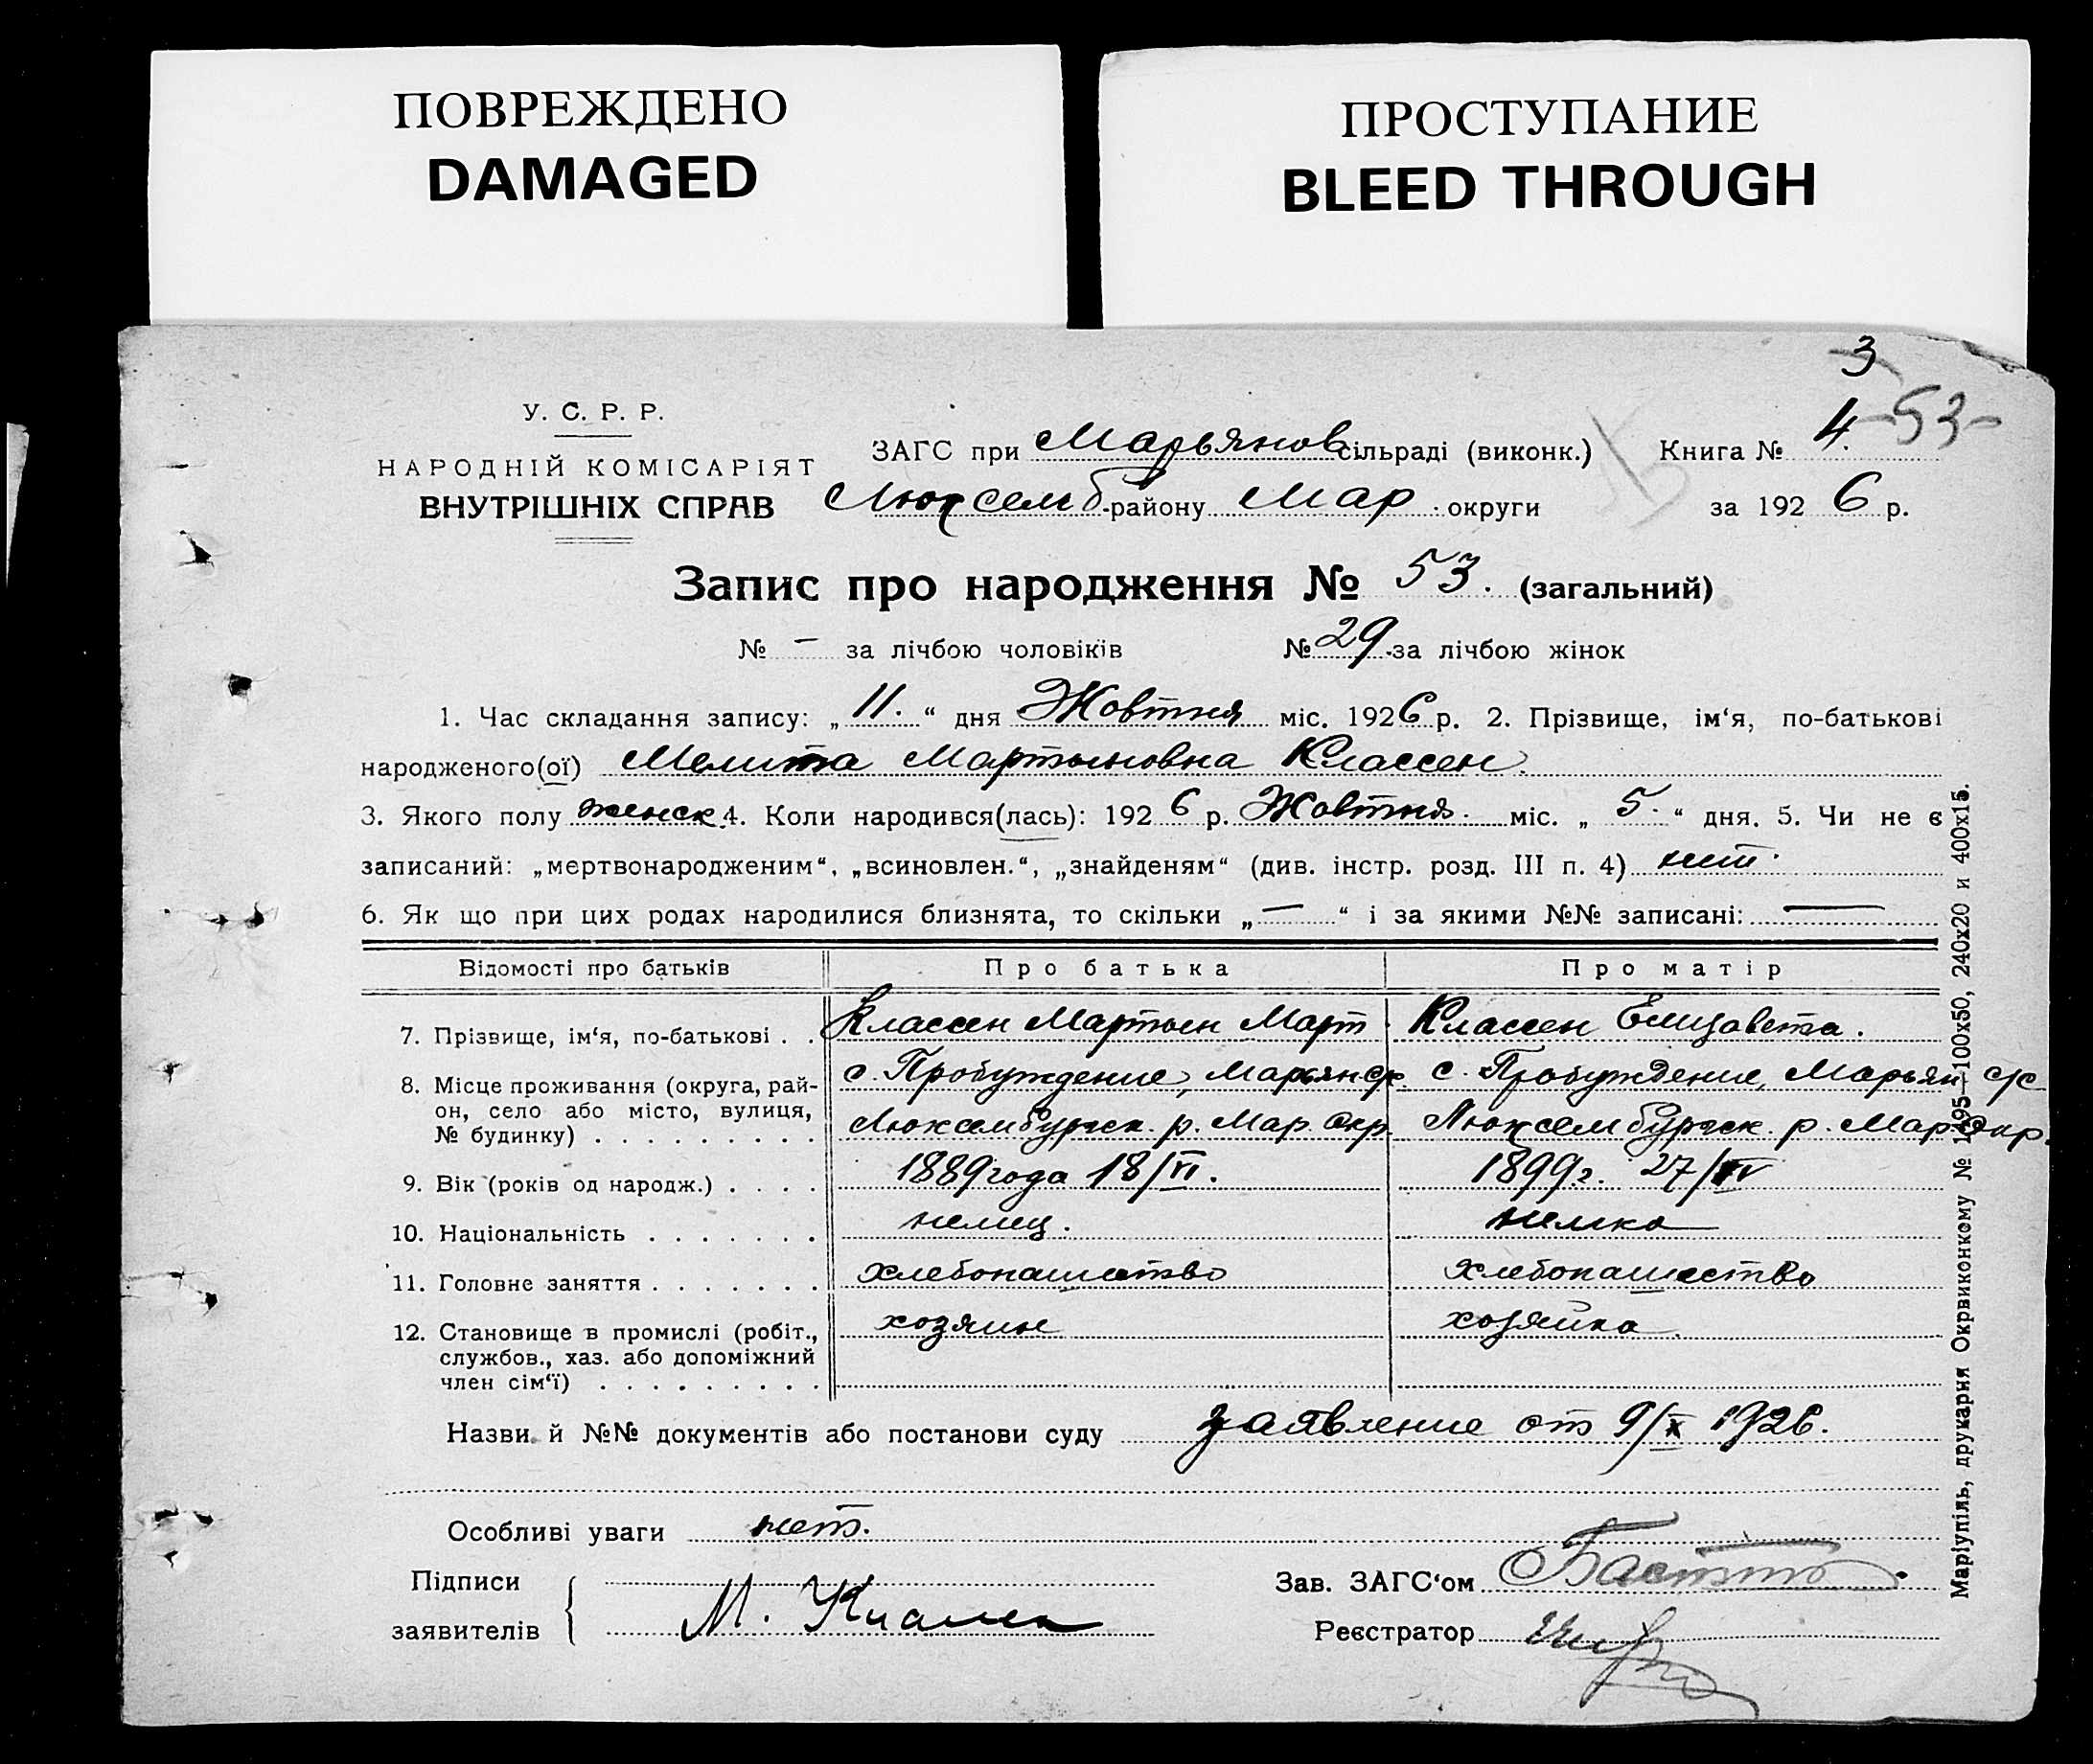 ПОВРЕЖДЕНО
DAMAGED
ПРОСТУПАНИЕ
BLEED THROUGH
3
-53-
У. С. Р. Р.
НАРОДНІЙ КОМІСАРІЯТ
ВНУТРІШНІХ СПРАВ
ЗАГС при Марьянов сільраді (виконк.) Книга № 4.
Люксемб. району Мар. округи за 1926 р.
Запис про народження № 53. (загальний)
№ — за лічбою чоловіків № 29 за лічбою жінок
1. Час складання запису: „11.“ дня Жовтня міс. 1926 р. 2. Прізвище, ім‘я, по-батькові
народженого(ої) Мелита Мартыновна Классен.
3. Якого полу женск. 4. Коли народився(лась): 1926 р. Жовтня. міс. „5.“ дня. 5. Чи не є
записаний: „мертвонародженим“, „всиновлен.“, „знайденям“ (див. інстр. розд. III п. 4) нет.
6. Як що при цих родах народилися близнята, то скільки „—“ і за якими №№ записані: —
Відомості про батьків Про батька Про матір
7. Прізвище, ім‘я, по-батькові . . Классен Мартын Март. Классен Елизавета.
8. Місце проживання (округа, рай- с. Пробуждение, Марьян с/с. с. Пробуждение, Марьян с/с
он, село або місто, вулиця,
№ будинку) . . . . . . . . . Люксембургск. р. Мар. Окр. Люксембургск. р. Мар. Окр.
9. Вік (років од народж.) . . . . 1889 года 18/VI. 1899 г. 27/IV
10. Національність . . . . . . . немец. немка
11. Головне заняття . . . . . . . хлебопашество хлебопашество
12. Становище в промислі (робіт., хозяин хозяйка.
службов., хаз. або допоміжний
член сім‘ї) . . . . . . . . .
Назви й №№ документів або постанови суду заявление от 9/X 1926.
Особливі уваги нет.
Підписи
заявителів М. Классен
Зав. ЗАГС‘ом
Реєстратор
Маріупіль, друкарня Окрвиконкому № 1495—100х50, 240х20 и 400х15.